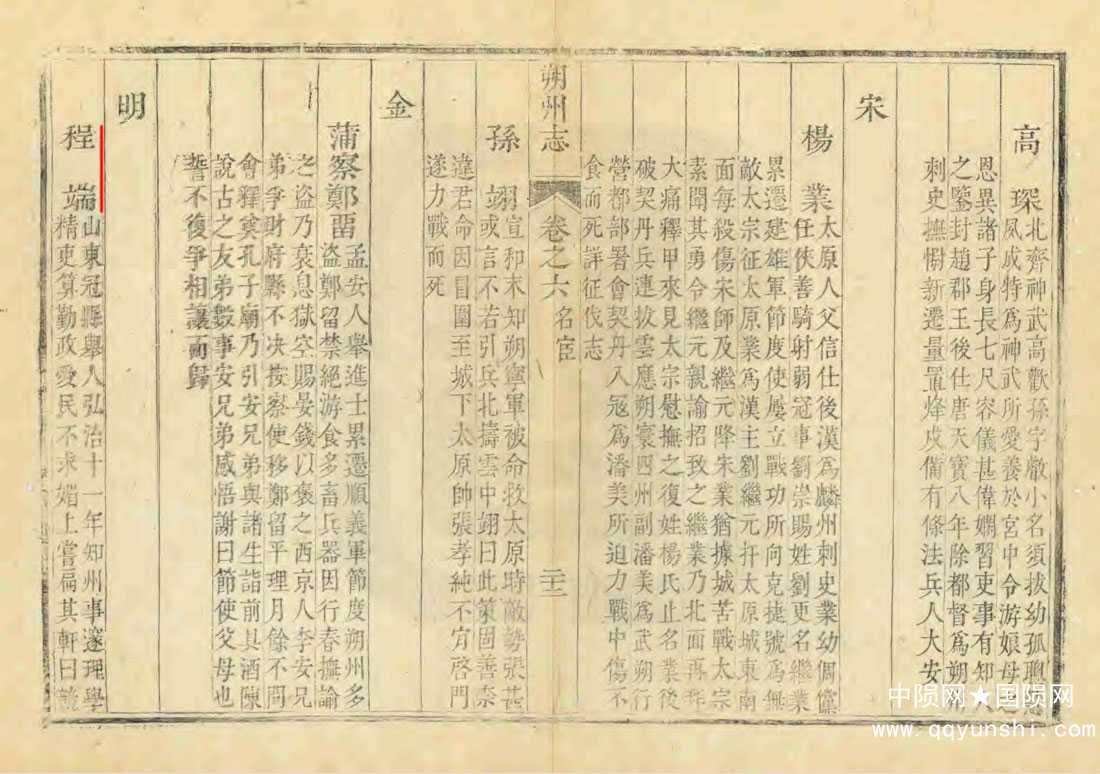 高 琛北齊神武高歡孫字敵小名須拔幼孤聰慧
夙成特爲神武所愛養於宮中令游娘母之
恩異諸子身長七尺容儀甚偉嫺習吏事有知人
之鑒封趙郡王後仕唐天寶八年除都督爲朔州
刺史撫恤新遷量置烽戍備有條法兵人大安
宋
楊 業太原人父信仕後漢爲麟州刺史業幼倜儻
任俠善騎射弱冠事劉崇賜姓劉更名繼業
累遷建雄軍節度使屢立戰功所向克捷號爲無
敵太宗征太原業爲漢主劉繼元扞太原城東南
面每殺傷宋師及繼元降宋業猶據城苦戰太宗
素聞其勇令繼元親諭招致之繼業乃北面再拜
大痛釋甲來見太宗慰撫之復姓楊氏止名業後
破契丹兵連拔雲應朔寰四州副潘美爲武朔行
營都部署會契丹入冦爲潘美所迫力戰中傷不
食而死詳征伐志
朔州志 卷之六 名宦 二十三
孫 翊宣和末知朔寧軍被命救太原時敵勢張甚
或言不若引兵北擣雲中翊曰此策固善柰
違君命因冒圍至城下太原帥張孝純不肯啓門
遂力戰而死
金
蒲察鄭畱孟安人舉進士累遷順義軍節度朔州多
盜鄭留禁絕游食多畜兵器因行春撫諭
之盜乃衰息獄空賜宴錢以褒之西京人李安兄
弟爭財府縣不決按察使移鄭留平理月餘不問
會釋奠孔子廟乃引安兄弟與諸生詣前具酒陳
說古之友弟數事安兄弟感悟謝曰節使父母也
誓不復爭相讓而歸
明
程 端山東冠縣舉人弘治十一年知州事邃理學
精吏算勤政愛民不求媚上嘗扁其軒曰
中陨网★国陨网
www.qqyunshi.com